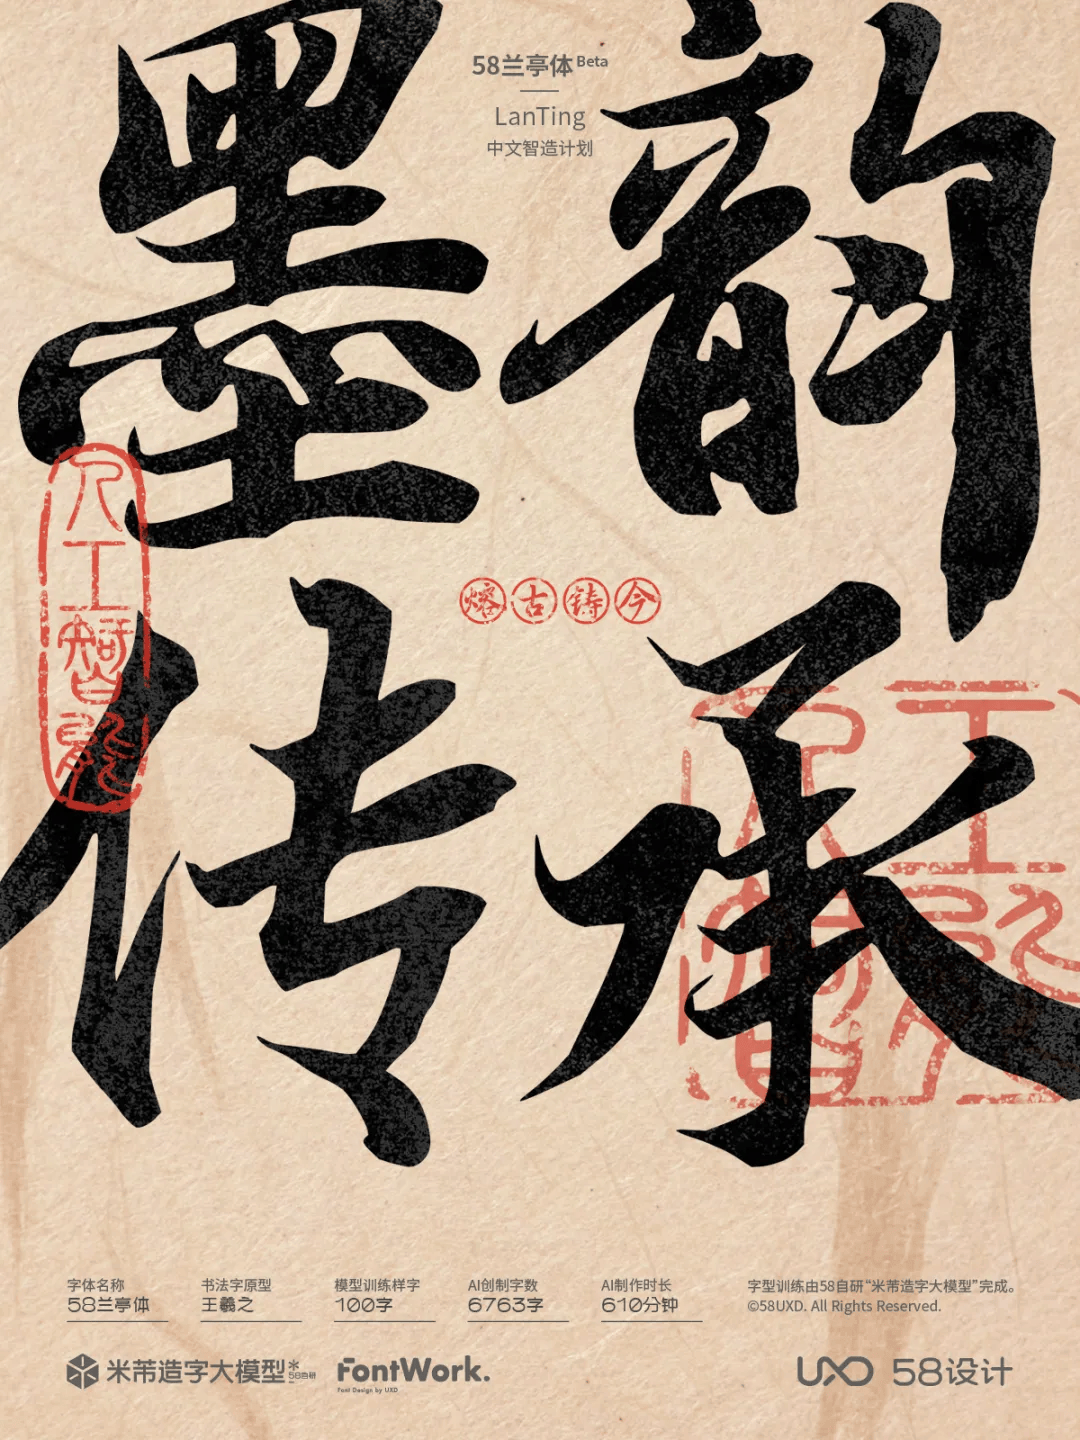 58兰亭体Beta
LanTing
中文智造计划
墨韵
熔古铸今
传承
人工智能
人工智能
字体名称
58兰亭体
书法字原型
王羲之
模型训练样字
100字
AI创制字数
6763字
AI制作时长
610分钟
字型训练由58自研“米芾造字大模型”完成。
©58UXD. All Rights Reserved.
米芾造字大模型
58自研
FontWork.
Font Design by UXD
UXD 58设计